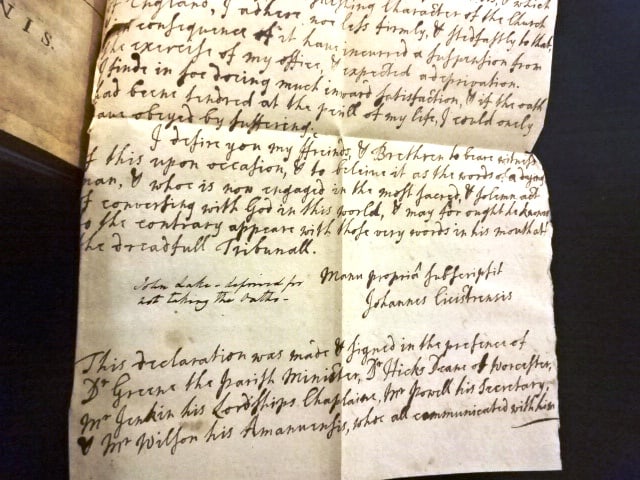 NIS.
of England, I adhere nor less firmly, & stedfastly to that,
consequence of it have incurred a suspension from
the exercise of my office, & expected a deprivation.
I finde in soe doing much inward satisfaction, & if the oath
had beene tendred at the perill of my life, I could onely
have obeyed by suffering.
I desire you my ffreinds, & Brethren to beare witness
of this upon occasion, & to beleive it as the words of a dying
man, & whoe is now engaged in the most sacred, & solemn act
of conversing with God in this world, & may for ought he knows
to the contrary appeare with those very words in his mouth at
the dreadfull Tribunall.
Manu propriâ subscripsit
Johannes Cicistrensis
John Lake - deprived for
not taking the Oaths -
This declaration was made & signed in the presence of
Dr Greene the parish Minister, Dr Hicks Deane of Worcester,
Mr Jenkin his Lordships Chaplaine, Mr Powell his Secretary,
& Mr Wilson his Amanuensis, whoe all communicated with him